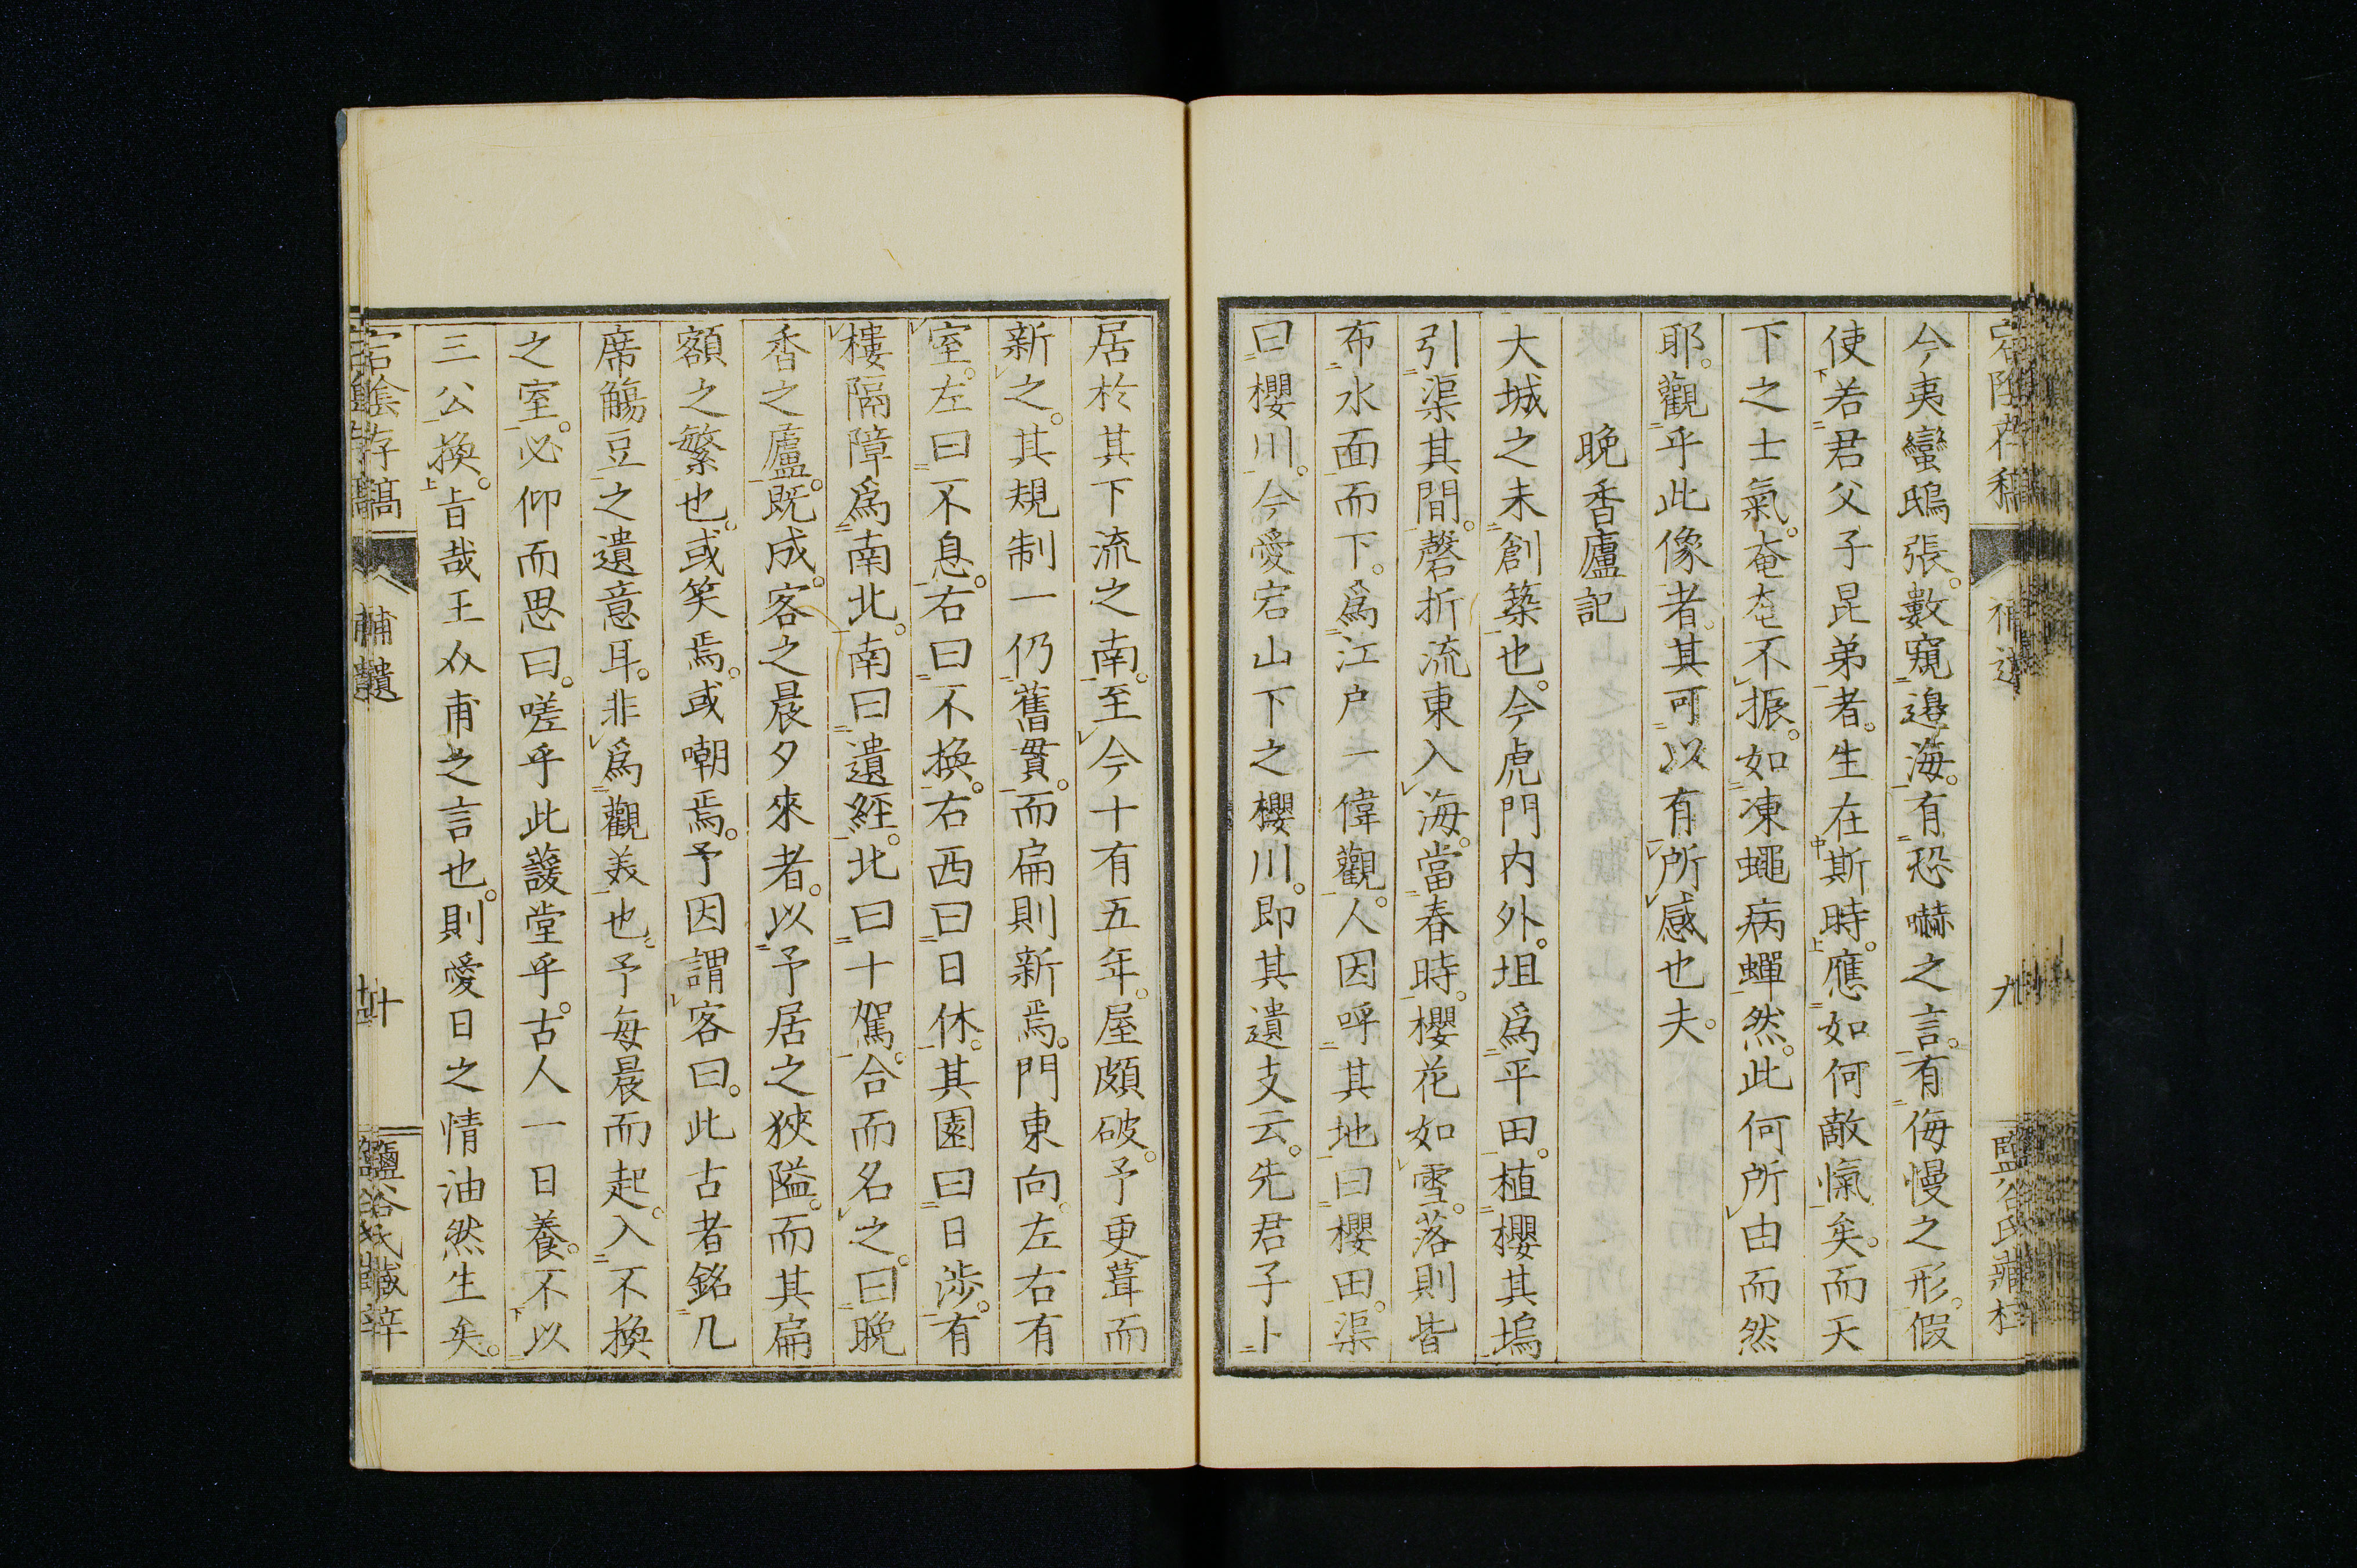 今夷蠻鴟張。數窺邊海。有恐嚇之言。有侮慢之形。假
使若君父子昆弟者。生在斯時。應如何敵愾矣。而天
下之士氣。奄奄不振。如凍蠅病蟬然。此何所由而然
耶。觀乎此像者。其可以有所感也夫。
晩香廬記
大城之未創築也。今虎門内外。坦爲平田。植櫻其塢
引渠其間。磬折流東入海。當春時。櫻花如雪。落則皆
布水面而下。爲江戸一偉觀。人因呼其地曰櫻田。渠
曰櫻川。今愛宕山下之櫻川。即其遺支云。先君子卜
居於其下流之南。至今十有五年。屋頗破。予更葺而
新之。其規制一仍舊貫。而扁則新焉。門東向。左右有
室。左曰不息。右曰不換。右西曰日休。其園曰日渉。有
樓隔障爲南北。南曰遺經。北曰十駕。合而名之。曰晩
香之廬。既成。客之晨夕來者。以予居之狹隘。而其扁
額之繁也。或笑焉。或嘲焉。予因謂客曰。此古者銘几
席觴豆之遺意耳。非爲觀美也。予毎晨而起。入不換
之室。必仰而思曰。嗟乎此護堂乎。古人一日養。不以
三公換。旨哉王介甫之言也。則愛日之情油然生矣。
宕陰存稿
補遺
十
鹽谷氏藏梓